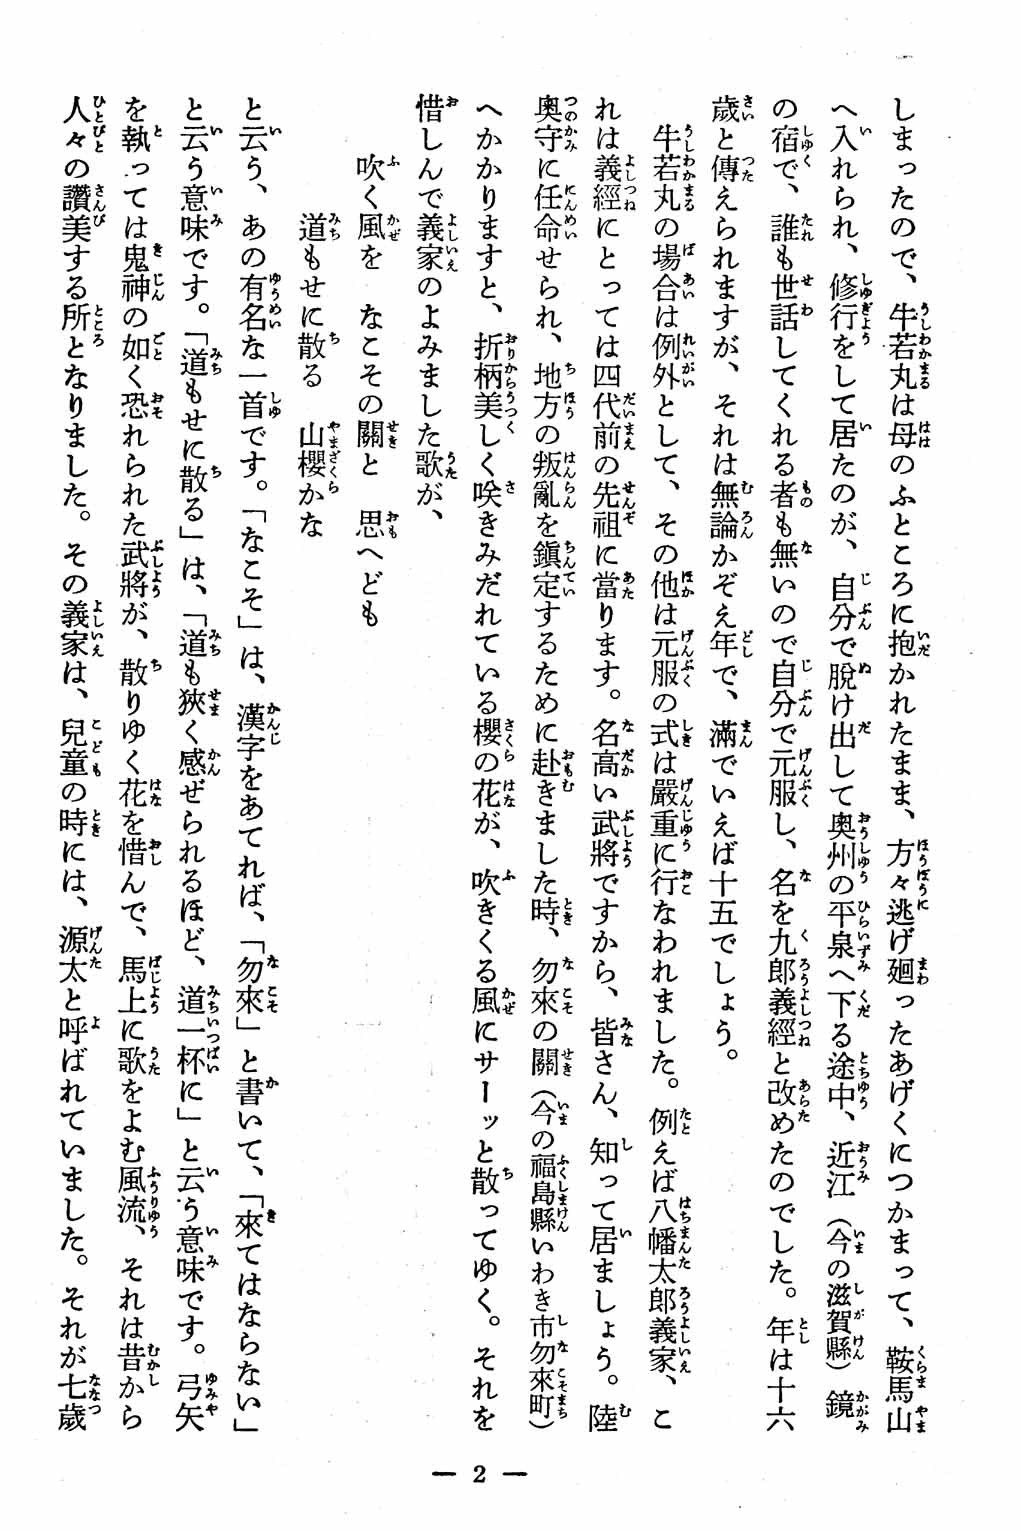 しまったので、牛若丸は母のふところに抱かれたまま、方々逃げ廻ったあげくにつかまって、鞍馬山
へ入れられ、修行をして居たのが、自分で脱け出して奥州の平泉へ下る途中、近江（今の滋賀縣）鏡
の宿で、誰も世話してくれる者も無いので自分で元服し、名を九郎義經と改めたのでした。年は十六
歳と傳えられますが、それは無論かぞえ年で、滿でいえば十五でしょう。
牛若丸の場合は例外として、その他は元服の式は嚴重に行なわれました。例えば八幡太郎義家、こ
れは義經にとっては四代前の先祖に當ります。名高い武將ですから、皆さん、知って居ましょう。陸
奥守に任命せられ、地方の叛亂を鎭定するために赴きました時、勿來の關（今の福島縣いわき市勿來町）
へかかりますと、折柄美しく咲きみだれている櫻の花が、吹きくる風にサーッと散ってゆく。それを
惜しんで義家のよみました歌が、
吹く風を　なこその關と　思へども
道もせに散る　山櫻かな
と云う、あの有名な一首です。「なこそ」は、漢字をあてれば、「勿來」と書いて、「來てはならない」
と云う意味です。「道もせに散る」は、「道も狹く感ぜられるほど、道一杯に」と云う意味です。弓矢
を執っては鬼神の如く恐れられた武將が、散りゆく花を惜んで、馬上に歌をよむ風流、それは昔から
人々の讚美する所となりました。その義家は、兒童の時には、源太と呼ばれていました。それが七歳
— 2 —